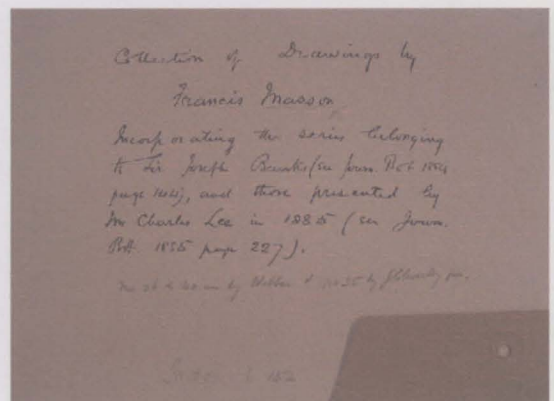 Collection of Drawings by
Francis Masson
Incorporating the series belonging
to Sir Joseph Banks (see Journ. Bot 1884
page 144), and those presented by
Mr Charles Lee in 1885 (see Journ.
Bot. 1885 page 227).
by no 25 by